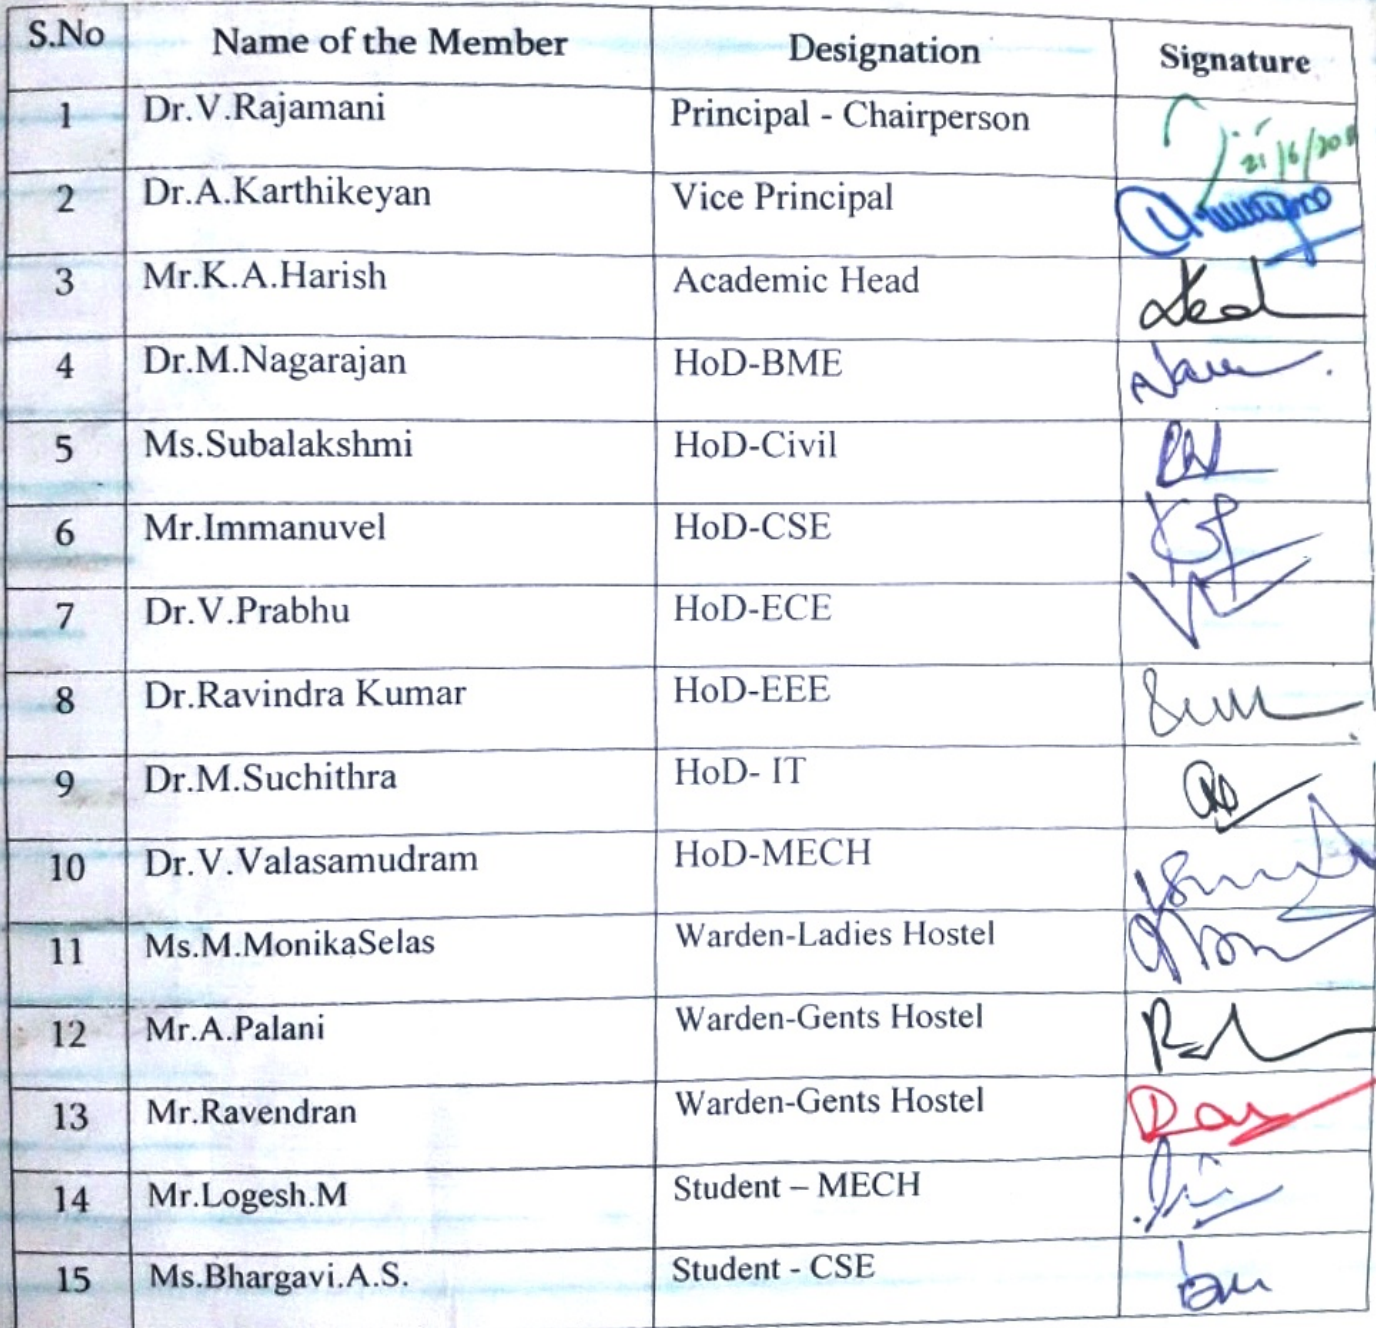 S.No Name of the Member Designation Signature
1 Dr.V.Rajamani Principal - Chairperson
21/6/201
2 Dr.A.Karthikeyan Vice Principal
3 Mr.K.A.Harish Academic Head
4 Dr.M.Nagarajan HoD-BME
5 Ms.Subalakshmi HoD-Civil
6 Mr.Immanuvel HoD-CSE
7 Dr.V.Prabhu HoD-ECE
8 Dr.Ravindra Kumar HoD-EEE
9 Dr.M.Suchithra HoD- IT
10 Dr.V.Valasamudram HoD-MECH
11 Ms.M.MonikaSelas Warden-Ladies Hostel
12 Mr.A.Palani Warden-Gents Hostel
13 Mr.Ravendran Warden-Gents Hostel
14 Mr.Logesh.M Student – MECH
15 Ms.Bhargavi.A.S. Student - CSE